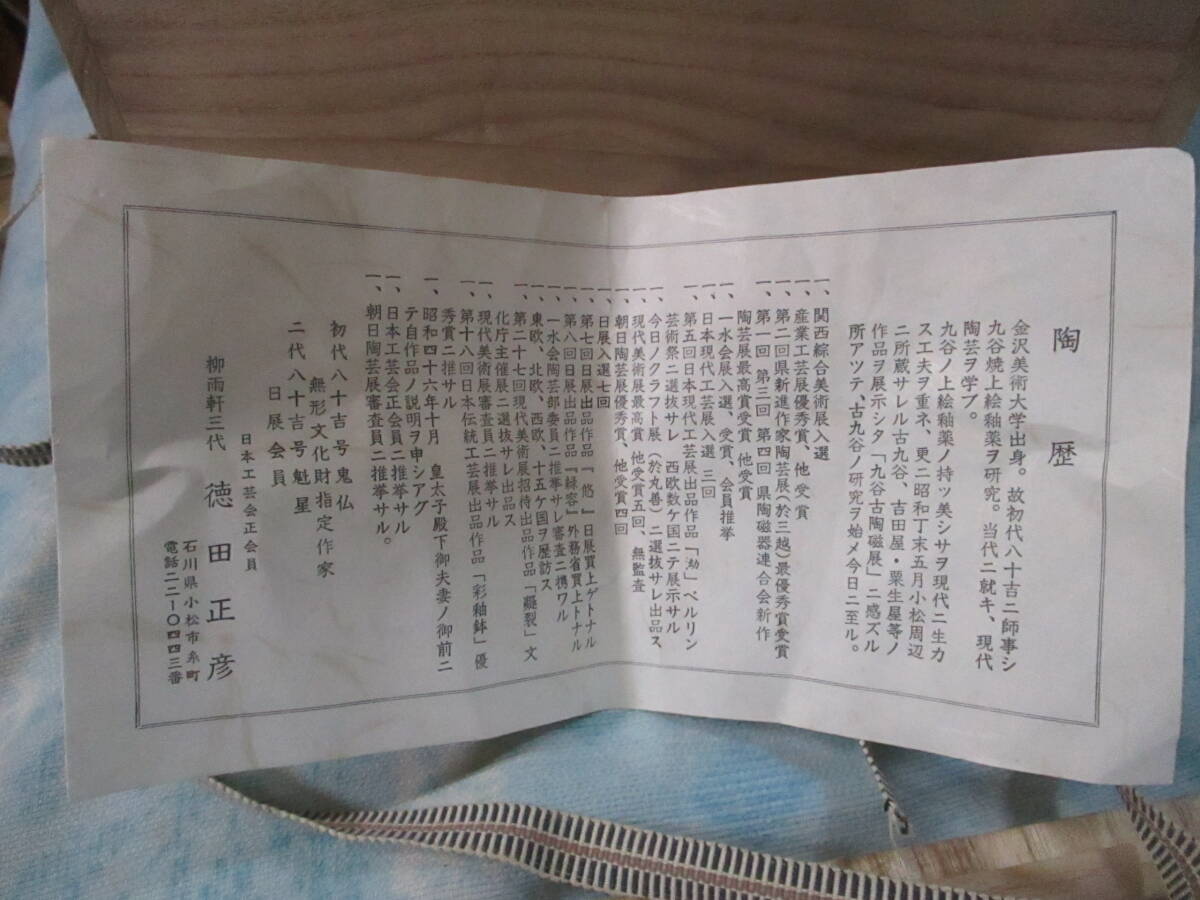 陶歴
金沢美術大学出身。故初代八十吉ニ師事シ
九谷焼上絵釉薬ヲ研究。当代ニ就キ、現代
陶芸ヲ学ブ。
九谷ノ上絵釉薬ノ持ツ美シサヲ現代ニ生カ
ス工夫ヲ重ネ、更ニ昭和丁末五月小松周辺
ニ所蔵サレル古九谷、吉田屋・粟生屋等ノ
作品ヲ展示シタ「九谷古陶磁展」ニ感ズル
所アツテ、古九谷ノ研究ヲ始メ今日ニ至ル。
一、関西綜合美術展入選
一、産業工芸展優秀賞、他受賞
一、第二回県新進作家陶芸展(於三越)最優秀賞受賞
一、第一回 第三回 第四回 県陶磁器連合会新作
陶芸展最高賞受賞 他受賞
一、一水会展入選、受賞、会員推挙
一、日本現代工芸展入選 三回
一、第五回日本現代工芸展出品作品「㓛」ベルリン
芸術祭ニ選抜サレ 西欧数ケ国ニテ展示サル
一、今日ノクラフト展(於丸善)ニ選抜サレ出品ス
一、現代美術展最高賞 他受賞五回、無監査
一、朝日陶芸展優秀賞、他受賞四回
一、日展入選七回
一、第七回日展出品作品『悠』日展買上ゲトナル
一、第八回日展出品作品『緑容』外務省買上トナル
一、一水会陶芸部委員ニ推挙サレ審査ニ携ワル
一、東欧、北欧、西欧、十五ケ国ヲ歴訪ス
一、第二十七回現代美術展招待出品作品「龝裂」文
化庁主催展ニ選抜サレ出品ス
一、現代美術展審査員ニ推挙サル
一、第十八回日本伝統工芸展出品作品「彩釉鉢」優
秀賞ニ推サル
一、昭和四十六年十月 皇太子殿下御夫妻ノ御前ニ
テ自作品ノ説明ヲ申シアグ
一、日本工芸会正会員ニ推挙サル
一、朝日陶芸展審査員ニ推挙サル。
初代八十吉号鬼仏
無形文化財指定作家
二代八十吉号魁星
日展会員
日本工芸会正会員
柳雨軒三代 徳田正彦
石川県小松市糸町
電話二二一〇四四三番